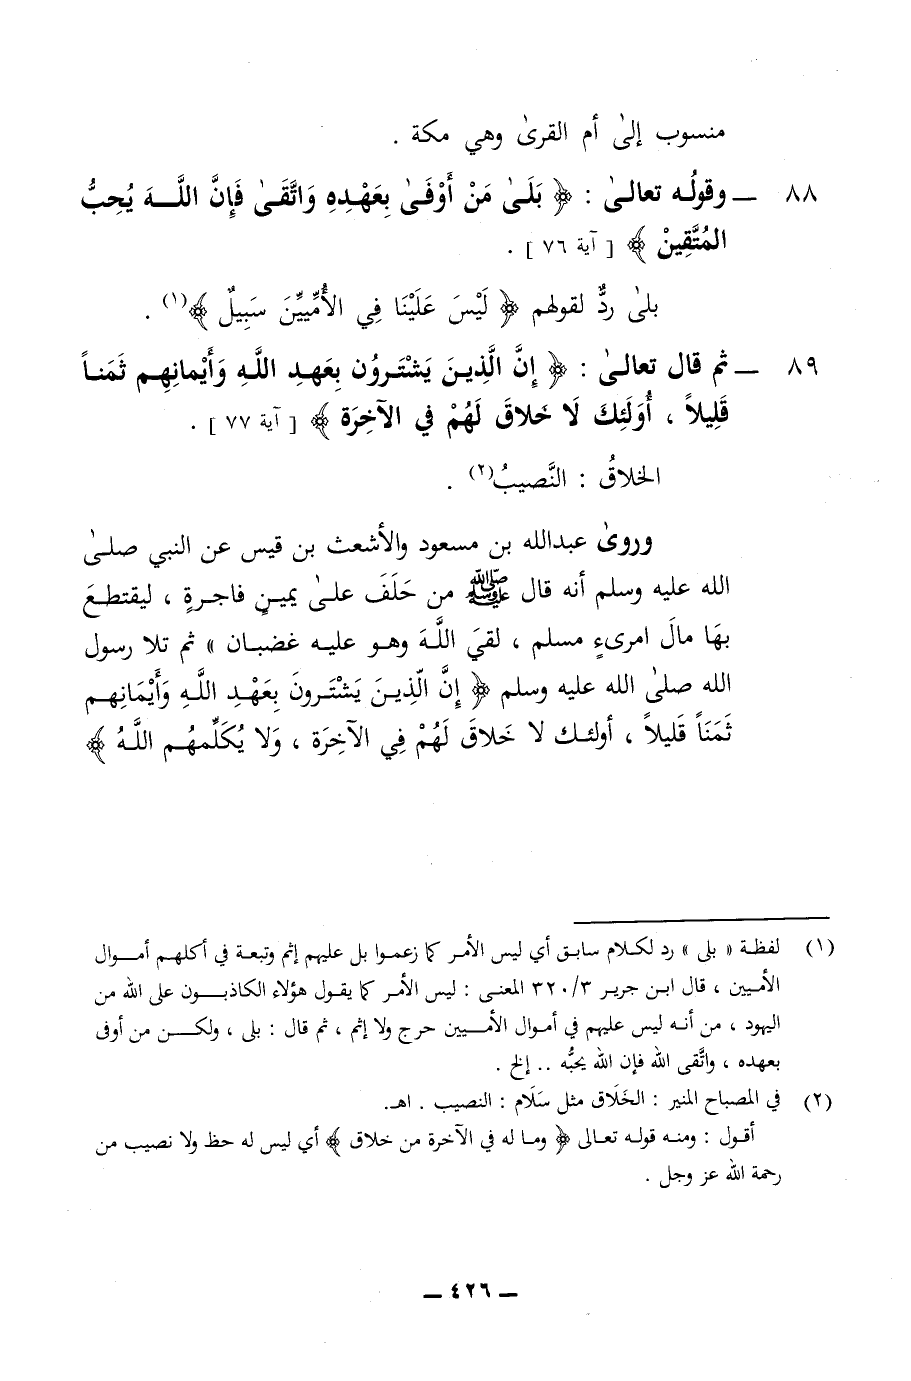 منسوب إلىٰ أم القرىٰ وهي مكة .
٨٨ ــ وقولُه تعالىٰ : ﴿ بَلَىٰ مَنْ أَوْفَىٰ بِعَهْدِهِ وَاتَّقَىٰ فَإِنَّ اللَّـهَ يُحِبُّ
المُتَّقِينْ ﴾ [ آية ٧٦ ] .
بلىٰ ردٌّ لقولهم ﴿ لَيْسَ عَلَيْنَا فِي الأُمِّيِّينَ سَبِيلٌ ﴾(١) .
٨٩ ــ ثم قال تعالىٰ : ﴿ إِنَّ الَّذِينَ يَشْتَروُن بِعَهدِ اللَّهِ وَأَيْمانِهِم ثَمَناً
قَلِيلاً ، أُوَلَئِكَ لَا خَلاقَ لَهُمْ في الآخِرَة ﴾ [ آية ٧٧ ] .
الخلاقُ : النَّصيبُ(٢) .
وروىٰ عبدالله بن مسعود والأشعث بن قيس عن النبي صلىٰ
الله عليه وسلم أنه قال ﷺ من حَلَفَ علىٰ يمينٍ فاجـرةٍ ، ليقتطعَ
بهَا مالَ امرىءٍ مسلم ، لقيَ اللَّهَ وهـو عليـه غضبـان » ثم تلا رسول
الله صلىٰ الله عليه وسلم ﴿ إِنَّ الّذِيـنَ يَشْتَـرونَ بِعَهْـدِ اللَّـهِ وَأَيْمَانِهِـم
ثَمَنَاً قَلِيلاً ، أولئـك لا خَلاقَ لَهُمْ فِي الآخِرَة ، وَلا يُكَلِّمهُـم اللَّـهُ ﴾
(١) لفظـة « بلى » رد لكـلام سابـق أي ليس الأمـر كما زعمـوا بل عليهم إثم وتبعـة في أكلهـم أمـوال
الأمـيين ، قال ابـن جريـر ٣٢٠/٣ المعنـى : ليس الأمـر كما يقـول هؤلاء الكاذبـون على الله من
اليهود ، من أنـه ليس عليهم في أمـوال الأمـيين حرج ولا إثم ، ثم قال : بلى ، ولكـن من أوفى
بعهده ، واتَّقى الله فإن الله يحبُّه .. إلخ .
(٢) في المصباح المنير : الخَلَاق مثل سَلَام : النصيب . اهـ.
أقـول : ومنـه قولـه تعـالى ﴿ ومـا له في الآخرة من خلاق ﴾ أي ليس له حظ ولا نصيب من
رحمة الله عز وجل .
ــ ٤٢٦ ــ